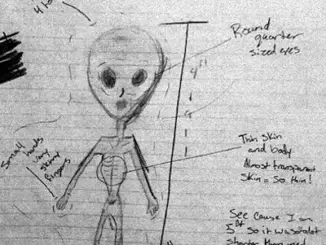 Round
quarter
sized eyes
4"
Small hands
very
skinny
fingers
Thin skin
and body
Almost transparent
Skin = So thin!
See cause I am
5ft So it was a lot
shorter than me